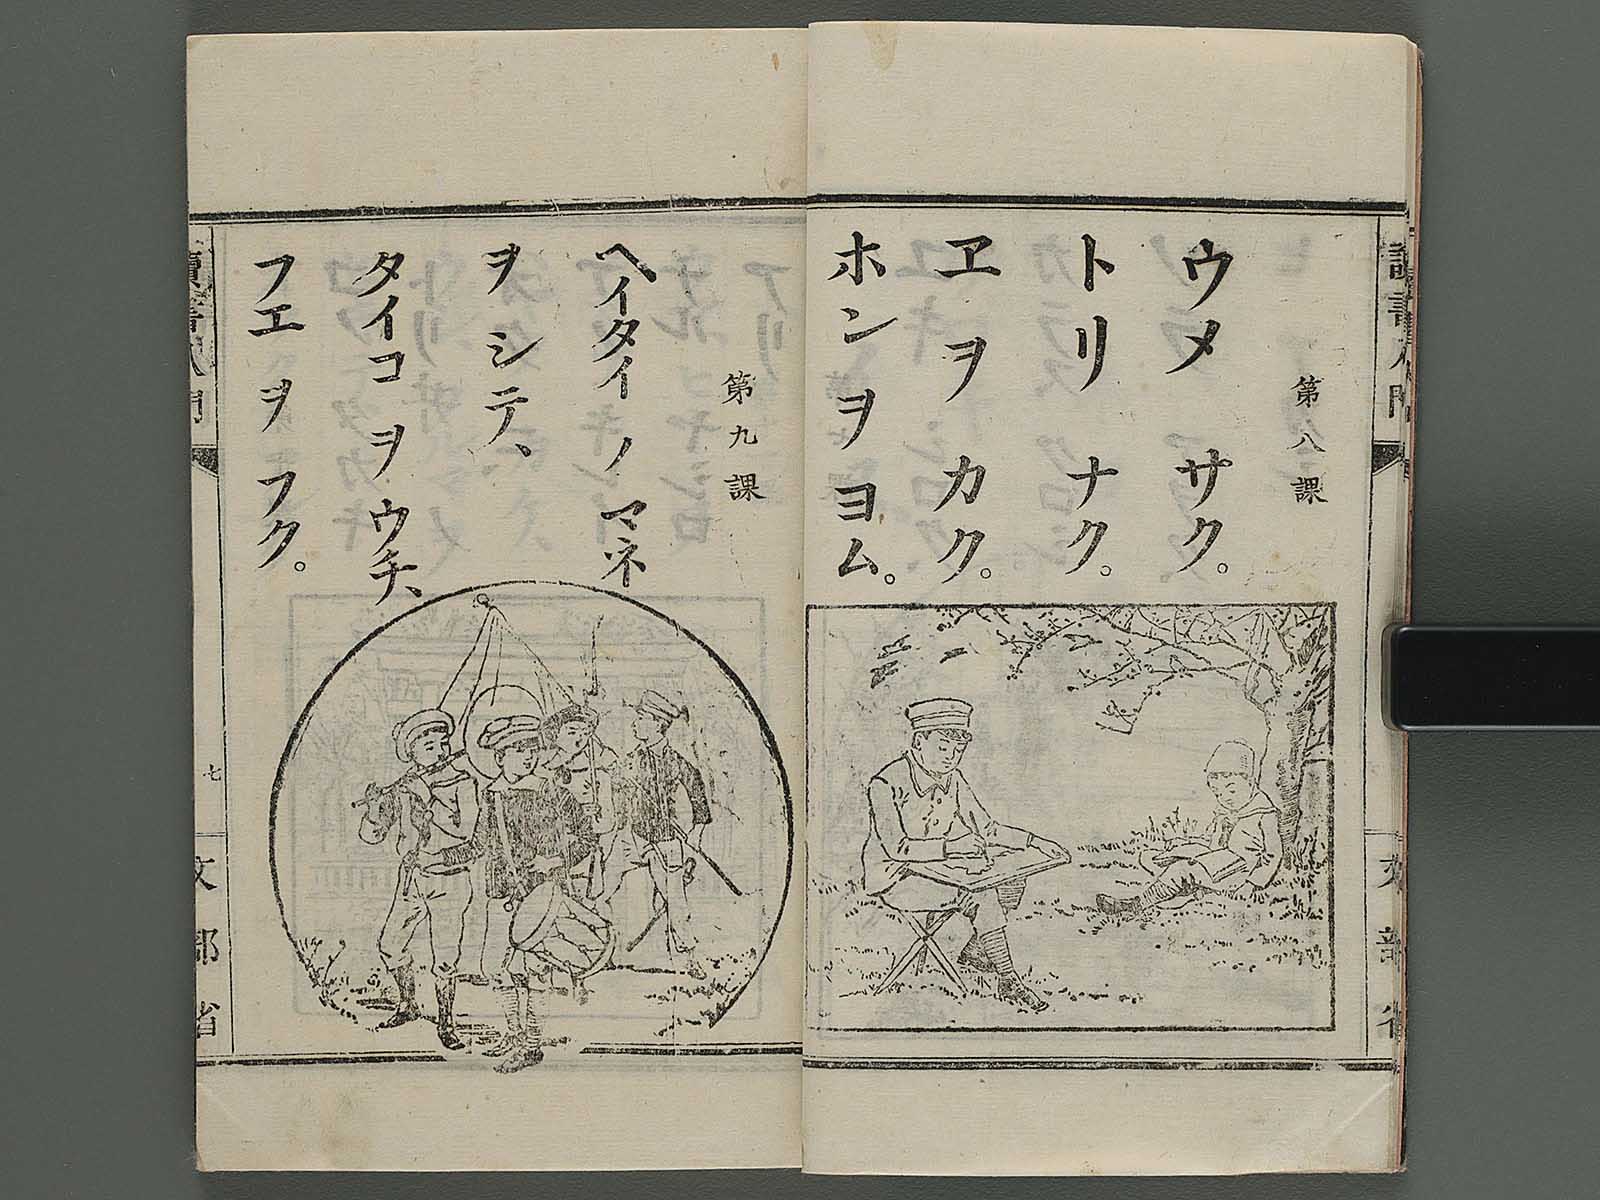 讀書入門
文部省
第八課
ウメ サク。
トリ ナク。
ヱ ヲ カク。
ホン ヲ ヨム。
第九課
ヘイタイ ノ マネ
ヲ シテ、
タイコ ヲ ウチ、
フエ ヲ フク。
讀書入門
七
文部省